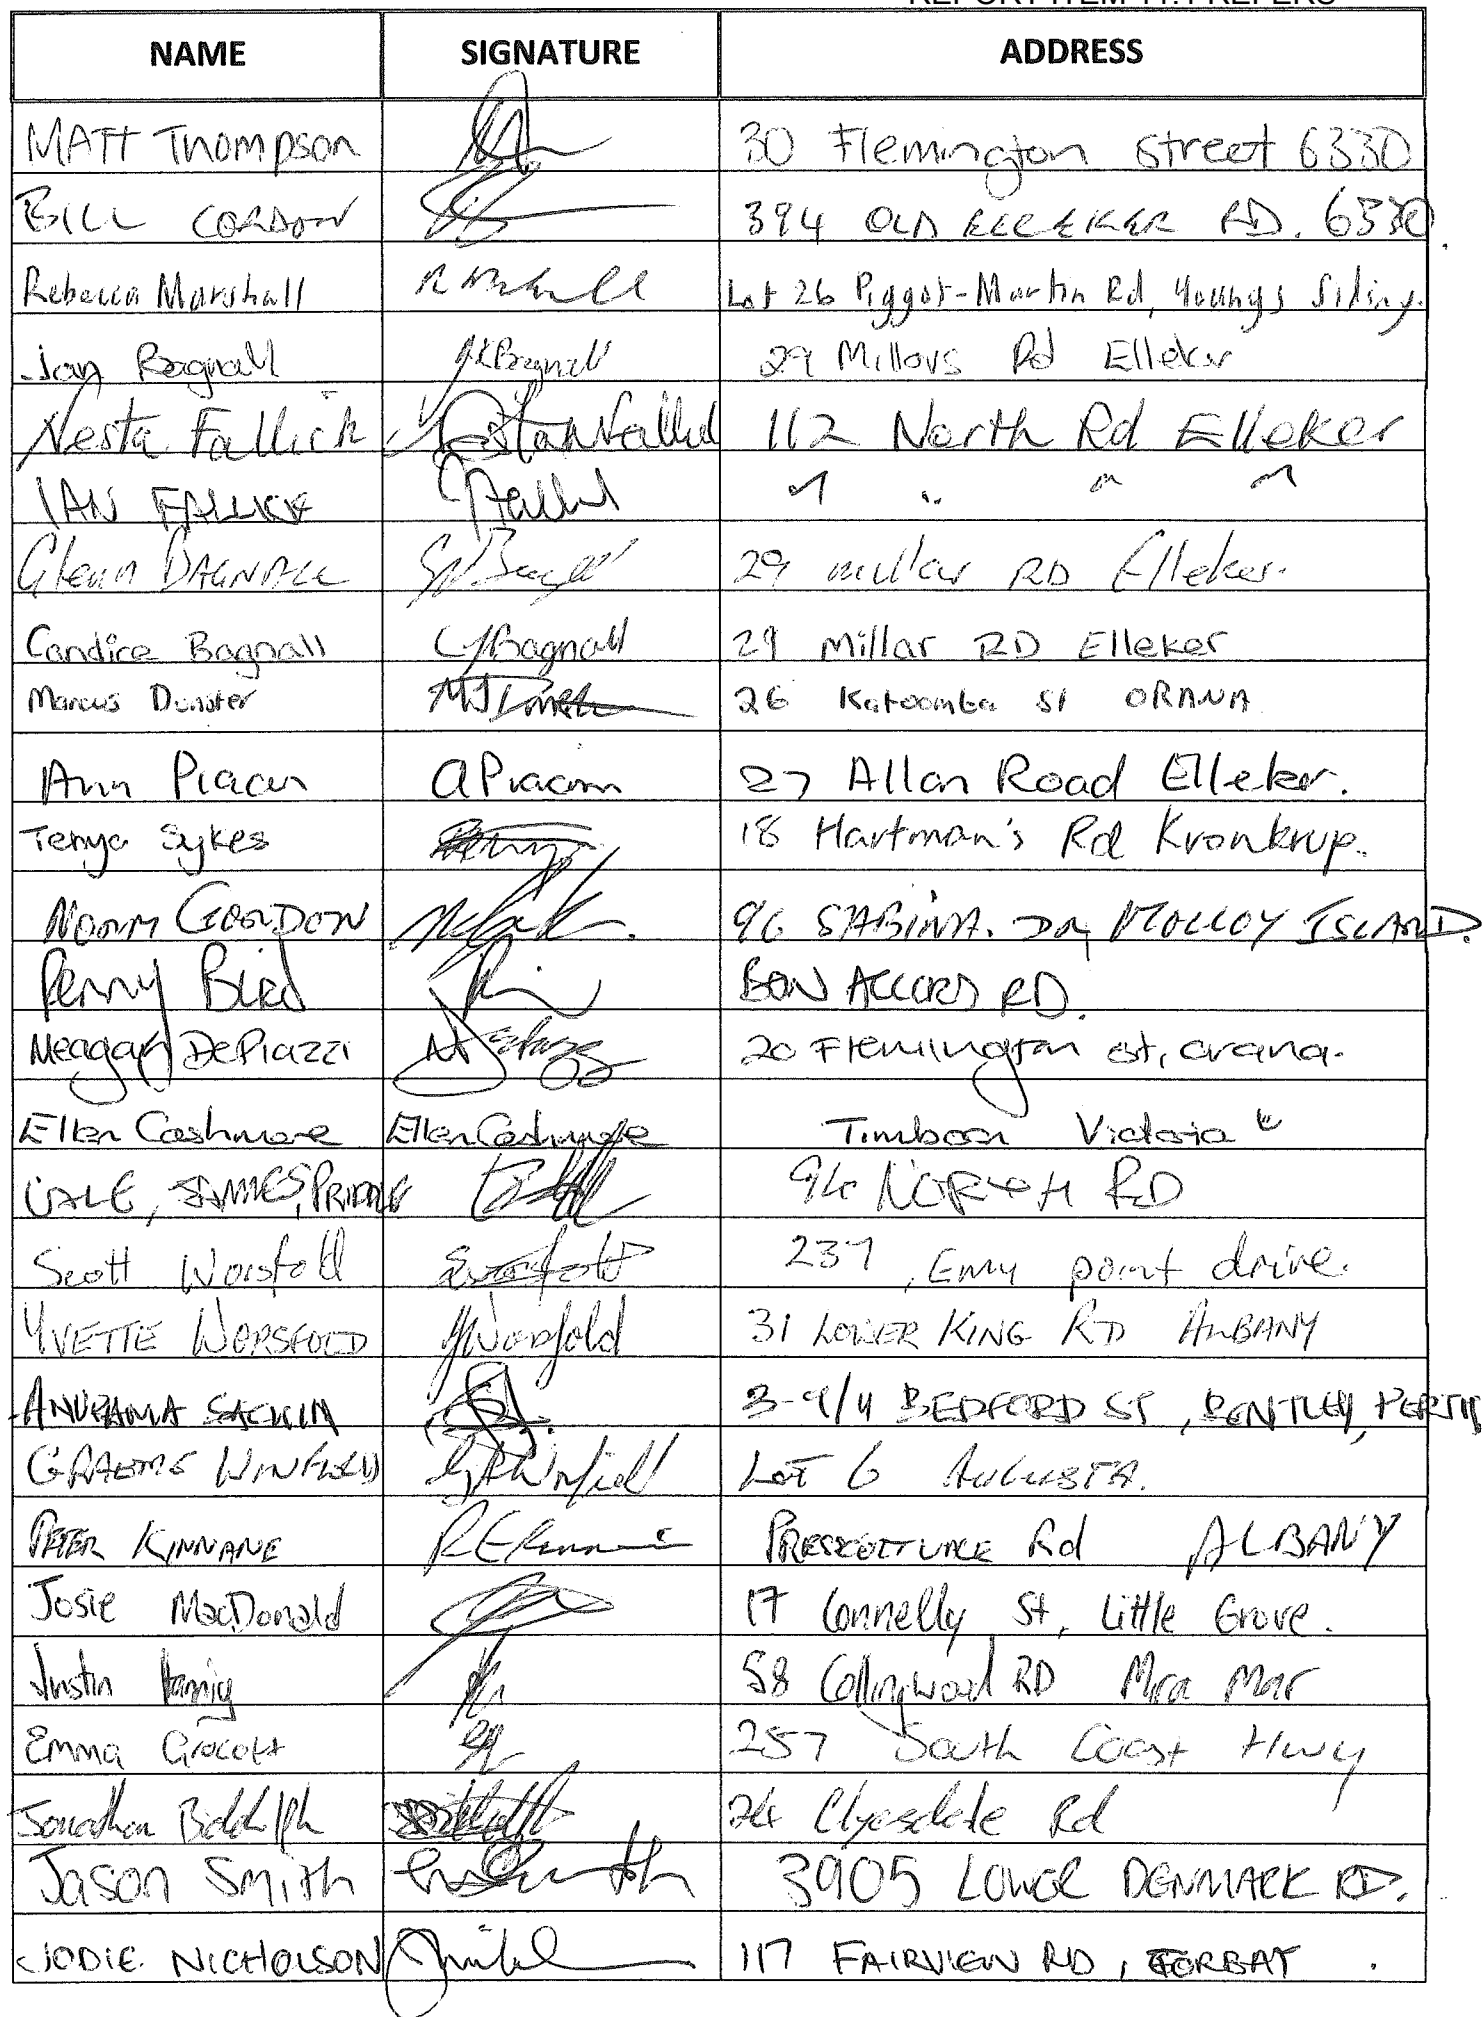 REPORT ITEM 11.1 REFERS
NAME SIGNATURE ADDRESS
MATT Thompson 30 Flemington Street 6330
BILL GORDON 394 OLD ELLEKER RD. 6330.
Rebecca Marshall Lot 26 Piggot-Martin Rd, Youngs Siding.
Jan Bagnall JKBagnall 29 Millars Rd Elleker
Nesta Fallick 112 North Rd Elleker
IAN FALLICK " " " "
Glenn BAGNALL 29 millar RD Elleker.
Candice Bagnall CJBagnall 29 Millar RD Elleker
Marcus Dunster 26 Katoomba St ORANA
Ann Piacun a Piacun 27 Allan Road Elleker.
Tenya Sykes 18 Hartman's Rd Kronkrup.
NORM GORDON 96 SABINA. DR, MOLLOY ISLAND.
Penny Bird BON ACCORD RD.
Meagan DePiazzi 20 Flemington st, orana.
Ellen Cashmore Ellen Cashmore Timboon Victoria
JAMES, 94 NORTH RD
Scott Worsfold 237, Emu point drive.
YVETTE WORSFOLD YWorsfold 31 LOWER KING RD ALBANY
ANUPAMA SACHIN 3-9/4 BEDFORD ST, BENTLEY, PERTH
GRAEME WINFIELD Winfield LOT 6 AUGUSTA.
PETER KINNANE Rd ALBANY
Josie MacDonald 17 Connelly St, Little Grove.
Justin 58 Collingwood RD Mira Mar
Emma Grocott 257 South Coast Hwy
Jonathan Biddulph 24 Clydesdale Rd
Jason Smith 3905 LOWER DENMARK RD.
JODIE NICHOLSON 117 FAIRVIEW RD, TORBAY